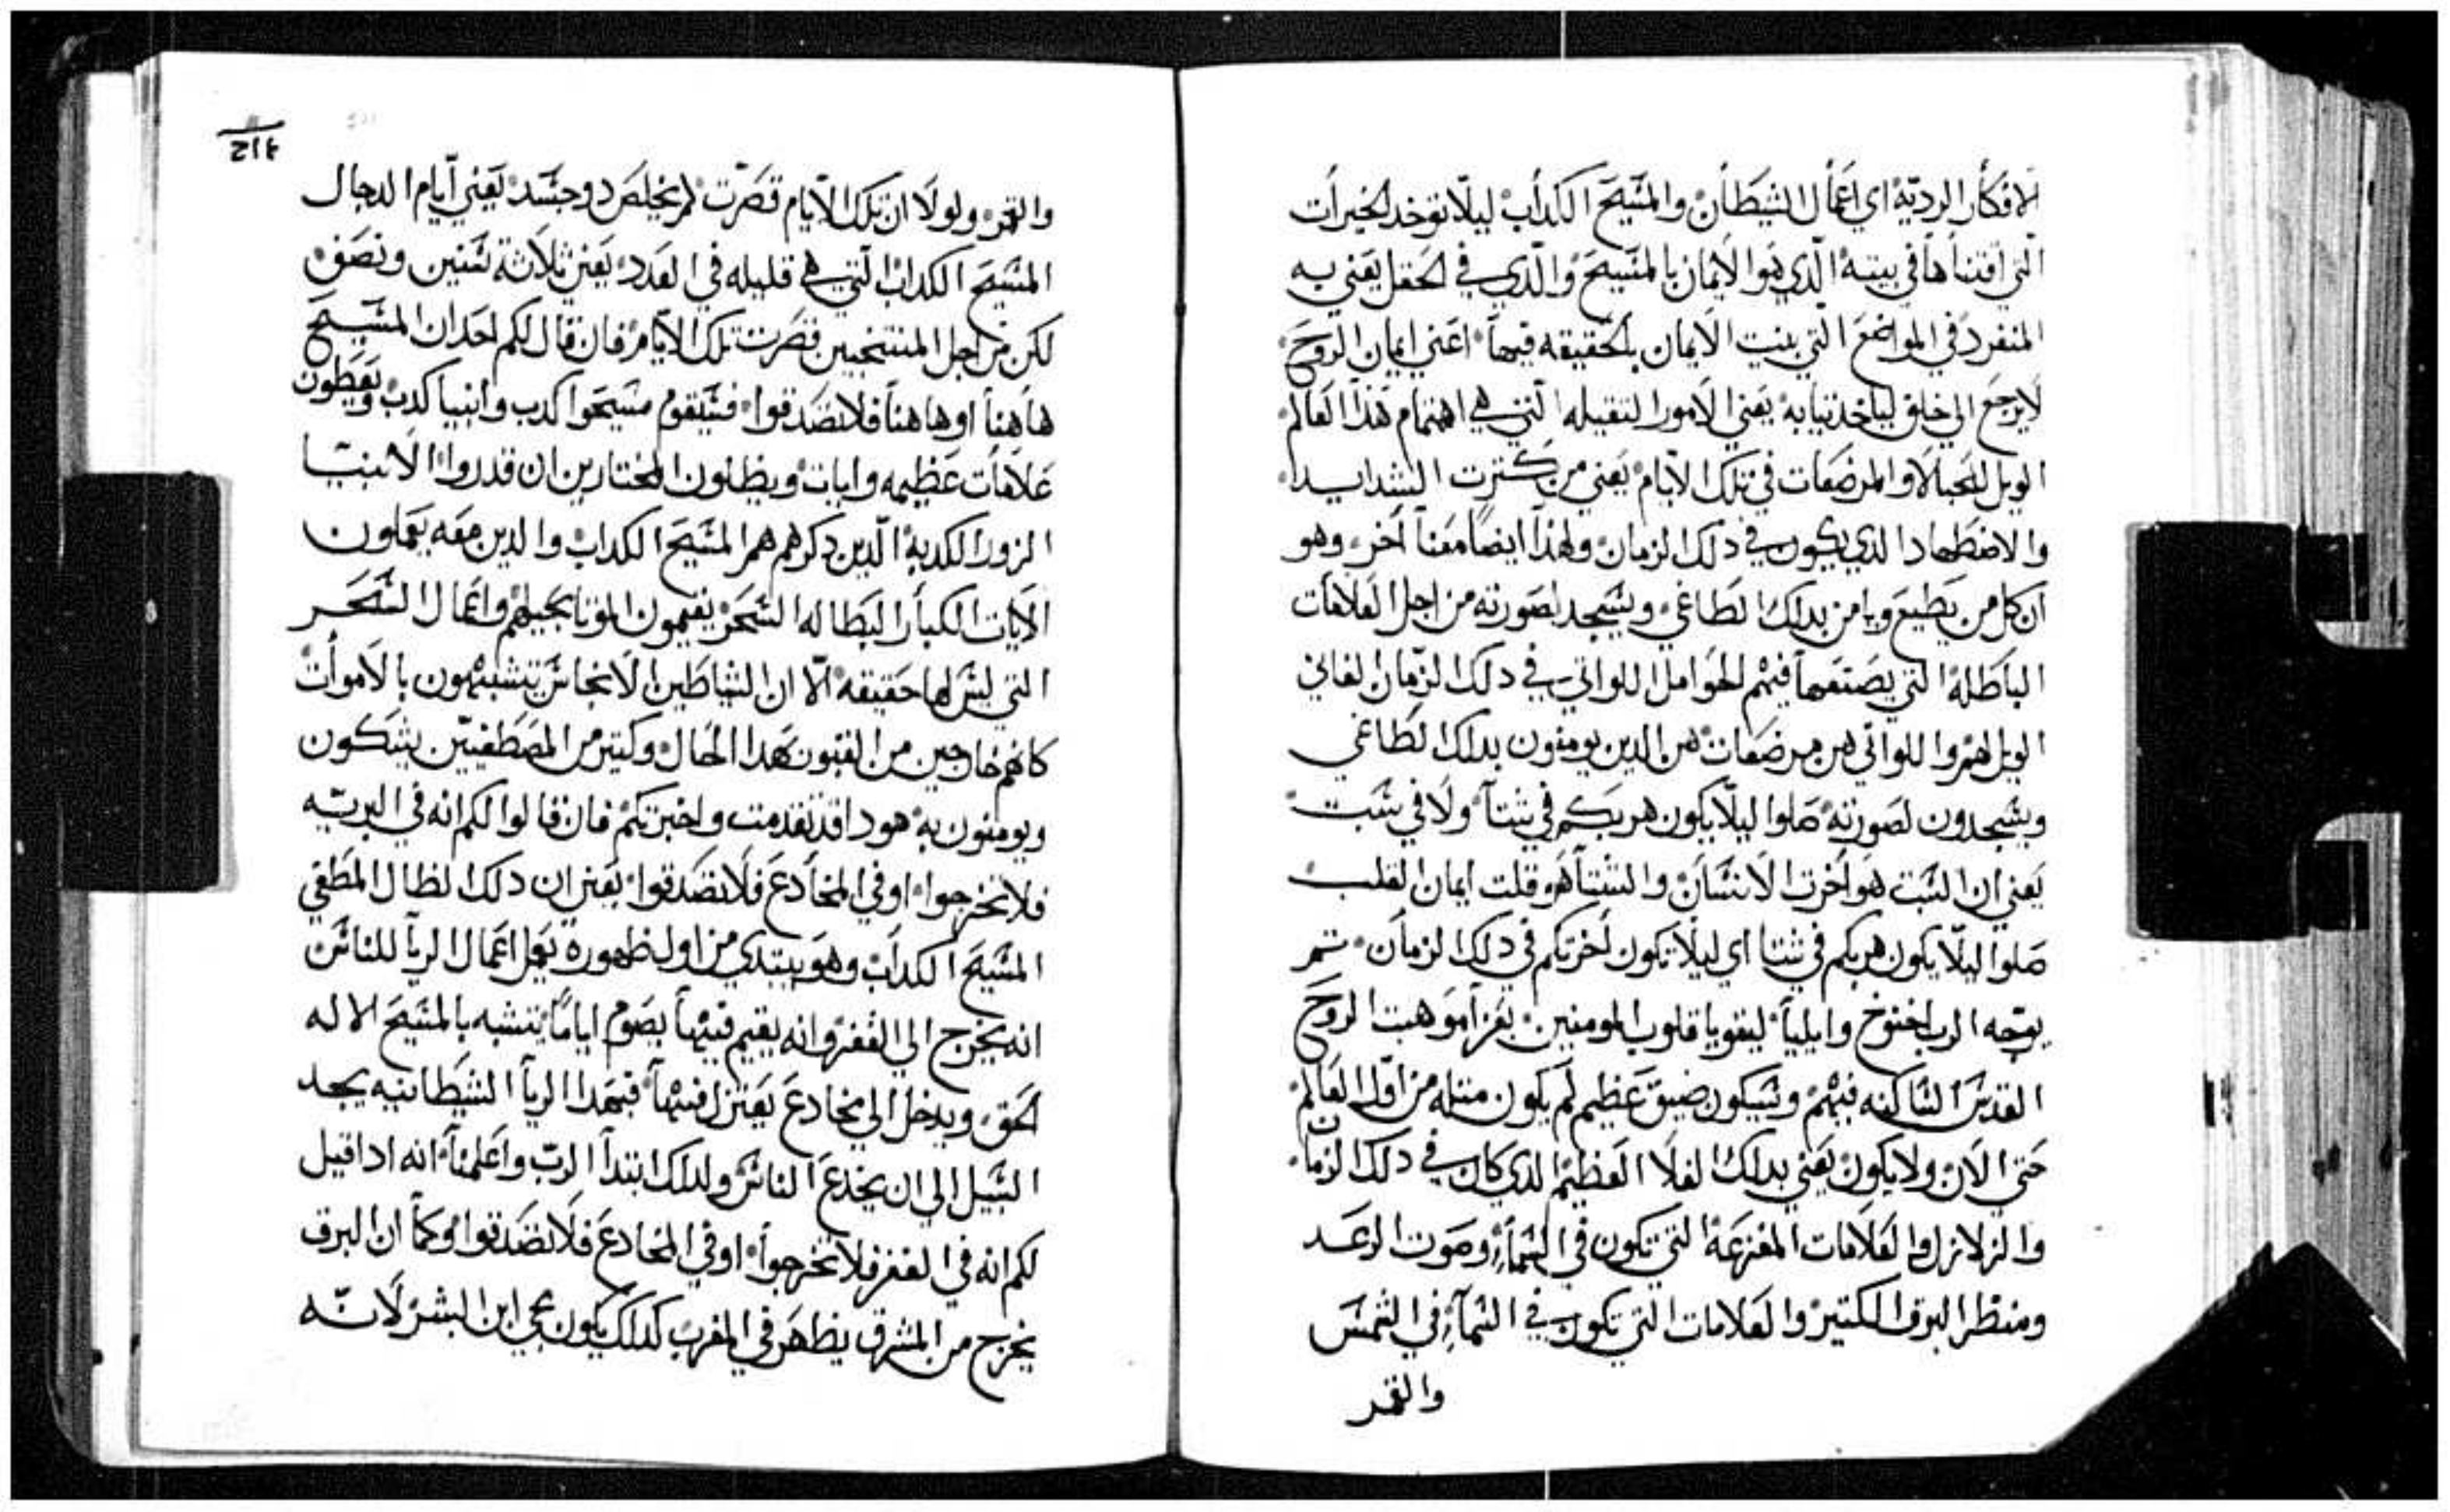 الافكار الرديّة اي اعمال الشيطان والمسّيح الكداب ليلا توخد الخيرات
التي اقتناها في بيته الذي هوا الايمان بالمسّيح والذي في الحقل يعني به
المنفرد في المواضع التي بنيت الايمان بالحقيقه فيها اعني ايمان الروح
لا يرجع الي خلف لياخد تيابه يعني الامور التقيله التي هي اهتمام هذا العالم
الويل للحبالا والمرضعات في تلك الايام يعني من كترت الشدايد
والاضطهاد الدي يكون في دلك الزمان ولهذا ايضا معنا اخر وهو
ان كل من يطيع ويامن بدلك الطاغي ويسّجد لصورته من اجل العلامات
الباطله التي يصنعها فهم الحوامل اللواتي في دلك الزمان الفاني
الويل لهم واللواتي هن مرضعات هن الدين يومنون بدلك الطاغي
ويسّجدون لصورته صلوا ليلا يكون هربكم في شتا ولا في سّبت
يعني ان السّبت هو اخرت الانسّان والشتا هو قلت ايمان القلب
صلوا ليلا يكون هربكم في شتا اي ليلا تكون اخرتكم في دلك الزمان تم
يوجه الرب اخنوخ وايليا ليقويا قلوب المومنين بعزا موهبت الروح
القدسّ السّاكنه فيهم وسّيكون ضيق عظيم لم يكون متله من اول العالم
حتي الان ولا يكون يعني بدلك الغلا العظيم الدي كان في دلك الزمان
والزلازل والعلامات المفزعة التي تكون في السّمآء وصوت الرعد
ومنظر البرق الكتير والعلامات التي تكون في السّمآء في الشمسّ
والقمر
٢١٤
والقمر ولولا ان تلك الايام قصرت لم يخلص دو جسّد يعني ايام الدجال
المسّيح الكداب التي هي قليله في العدد يعني تلاتة سّنين ونصف
لكن من اجل المنتخبين قصرت تلك الايام فان قال لكم احد ان المسّيح
هاهنا او هاهنا فلا تصدقوا فسّيقوم مسّيحوا كدب وانبيا كدب ويعطون
علامات عظيمه وايات ويظلون المختارين ان قدروا الانبيا
الزور الكدبة الدين دكرهم هم المسّيح الكداب والدين معه يعملون
الايات الكبار البطاله السّحر يقيمون الموتا بحيلهم واعمال السّحر
التي ليسّ لها حقيقه الا ان الشياطين الانجاسّ يتشبهون بالاموات
كانهم خارجين من القبور بهدا الحال وكتير من المصطفيين يشكون
ويومنون به هودا قد تقدمت واخبرتكم فان قالوا لكم انه في البريه
فلا تخرجوا او في المخادع فلا تصدقوا يعني ان دلك الظال المطغي
المسّيح الكداب وهو يبتدي من اول ظهوره يعمل اعمال الريا للناسّ
انه يخرج الي القفر وانه يقيم فيها يصوم اياما يتشبه بالمسّيح الاله
الحق ويدخل الي مخادع يعتزل فيها فبهدا الريا الشيطانيه يجد
السّبيل الي ان يخدع الناسّ ولدلك ابتدا الرب واعلمنا انه ادا قيل
لكم انه في القفر فلا تخرجوا او في المخادع فلا تصدقوا وكما ان البرق
يخرج من المشرق يظهر في المغرب كدلك يكون مجي ابن البشر لانه